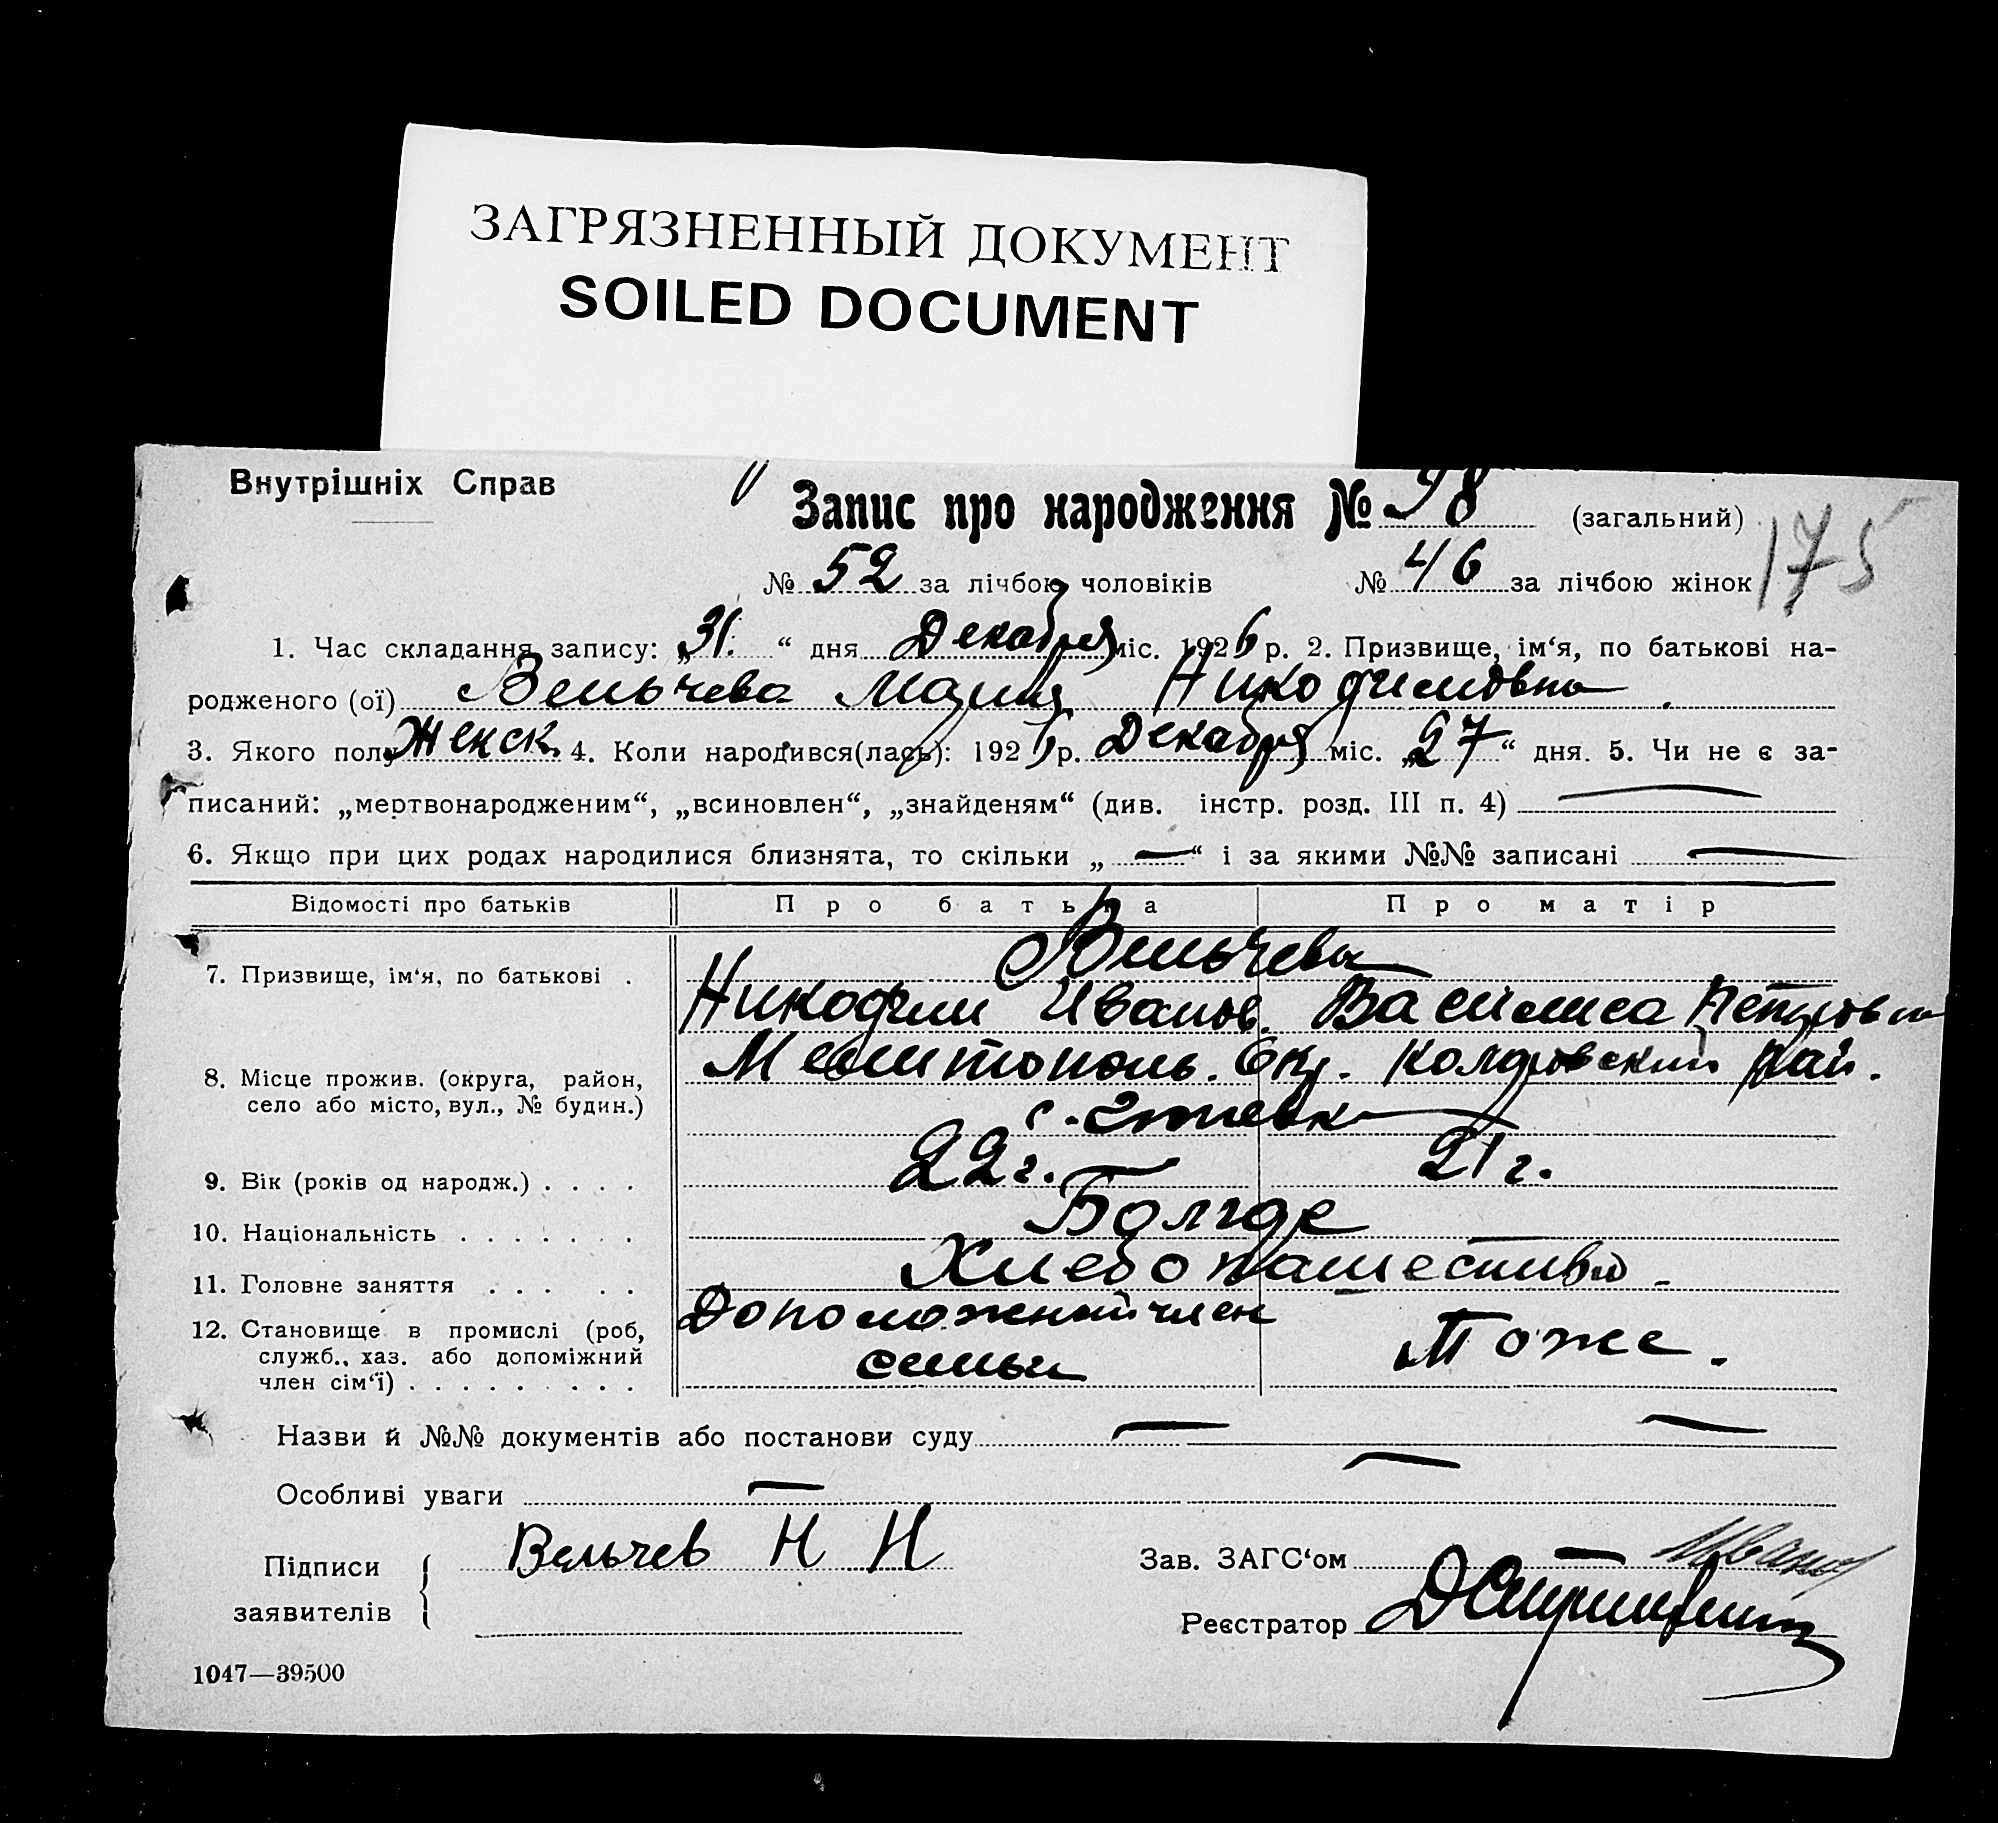 ЗАГРЯЗНЕННЫЙ ДОКУМЕНТ
SOILED DOCUMENT
Внутрішніх Справ
Запис про народження № 98 (загальний)
175
№ 52 за лічбою чоловіків № 46 за лічбою жінок
1. Час складання запису: „31.“ дня Декабря міс. 1926 р. 2. Призвище, ім‘я, по батькові на-
родженого (ої) Вельчева Мария Никодимовна
3. Якого полу Женск. 4. Коли народився(лась): 1926 р. Декабря міс. „27“ дня. 5. Чи не є за-
писаний: „мертвонародженим“, „всиновлен“, „знайденям“ (див. інстр. розд. III п. 4) —
6. Якщо при цих родах народилися близнята, то скільки „—“ і за якими №№ записані —
Відомості про батьків Про батька Про матір
7. Призвище, ім‘я, по батькові . Вельчевы
Никодим Иванов. Василиса Петровна
8. Місце прожив. (округа, район, село або місто, вул., № будин.) Мелитополь. Окр. Коларовский Рай.
с.
9. Вік (років од народж.) . . . . 22 г. 21 г.
10. Національність . . . . . . . Болгаре
11. Головне заняття . . . . . Хлебопашество
12. Становище в промислі (роб, служб., хаз. або допоміжний член сім‘ї) . . . . . . . . . Допоможный член семьи Тоже.
Назви й №№ документів або постанови суду — —
Особливі уваги — —
Підписи заявителів { Вельчев Н Н
Зав. ЗАГС‘ом —
Реєстратор
1047—39500